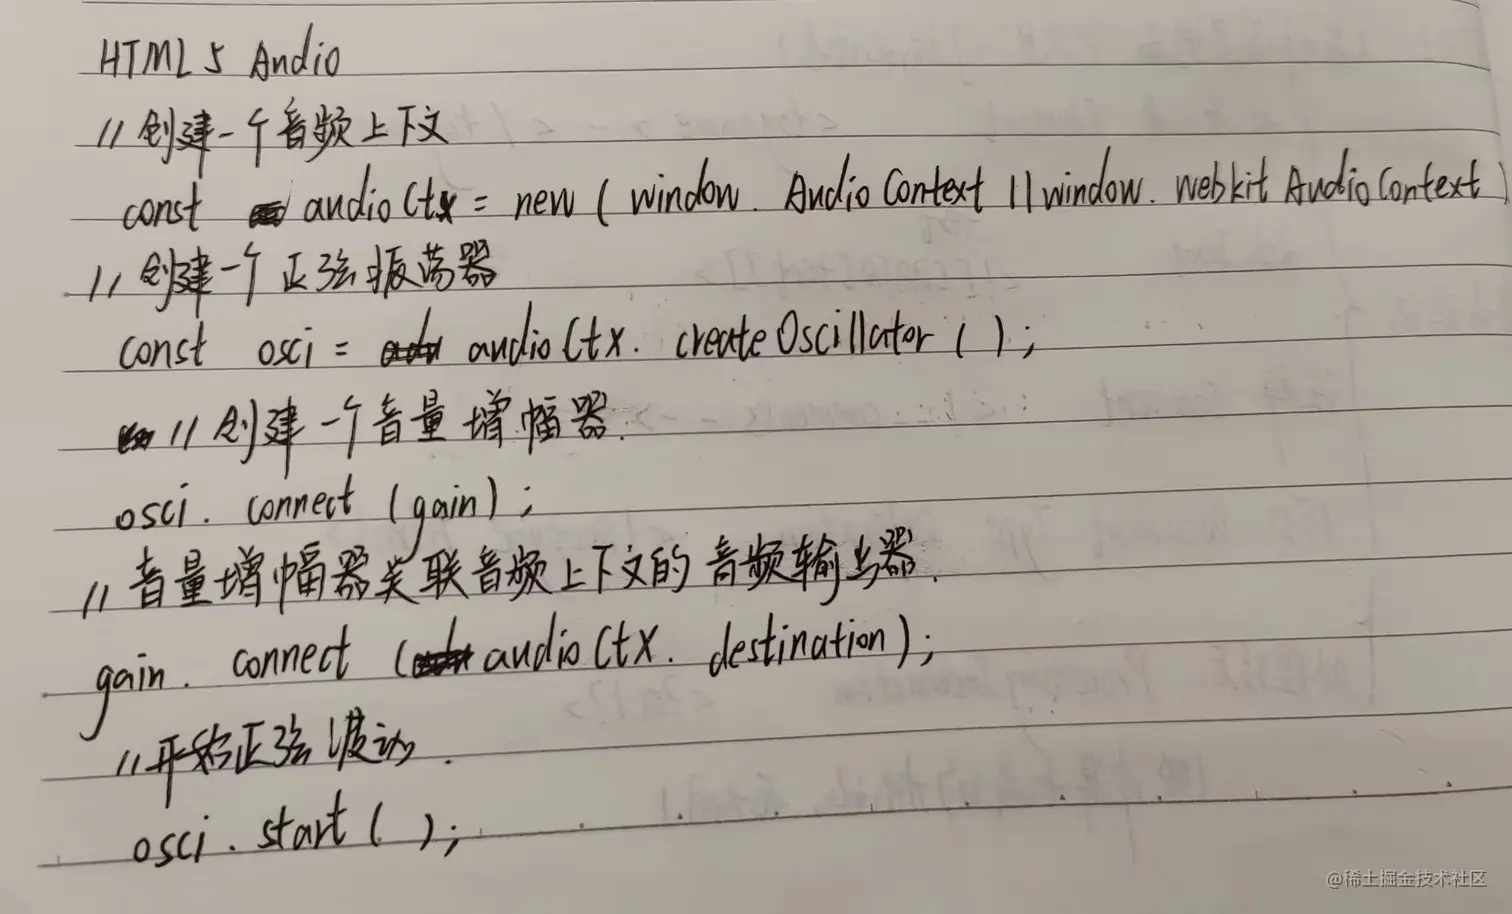 HTML5 Audio
// 创建一个音频上下文
const audioCtx = new (window.AudioContext || window.webkitAudioContext)
// 创建一个正弦振荡器
const osci = audioCtx.createOscillator();
// 创建一个音量增幅器.
osci.connect(gain);
// 音量增幅器关联音频上下文的音频输出器.
gain.connect(audioCtx.destination);
// 开始正弦波动.
osci.start();
@稀土掘金技术社区